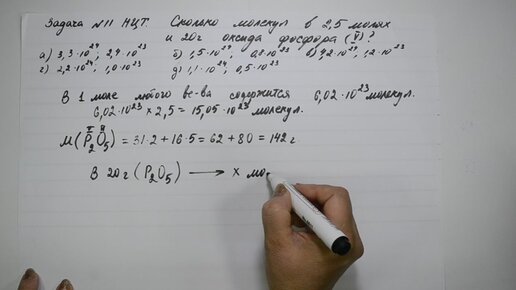 Задача №11 НЦТ. Сколько молекул в 2,5 молях
и 20г оксида фосфора (V)?
а) 3,3·10²⁴, 2,4·10²³ б) 1,5·10²⁴, 0,8·10²³ в) 4,2·10²⁴, 1,2·10²³
г) 2,2·10²⁴, 1,0·10²³ д) 1,1·10²⁴, 0,5·10²³
В 1 моле любого ве-ва содержится 6,02·10²³ молекул.
6,02·10²³ × 2,5 = 15,05·10²³ молекул.
V II
M(P₂O₅) = 31·2 + 16·5 = 62 + 80 = 142 г
В 20г (P₂O₅) ⟶ x мо